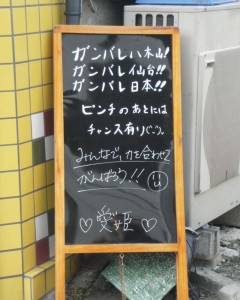 ガンバレ八木山!
ガンバレ仙台!!
ガンバレ日本!!
ピンチのあとには
チャンス有りぐ〜。
みんなで、力を合わせて
がんばろう!!
愛姫